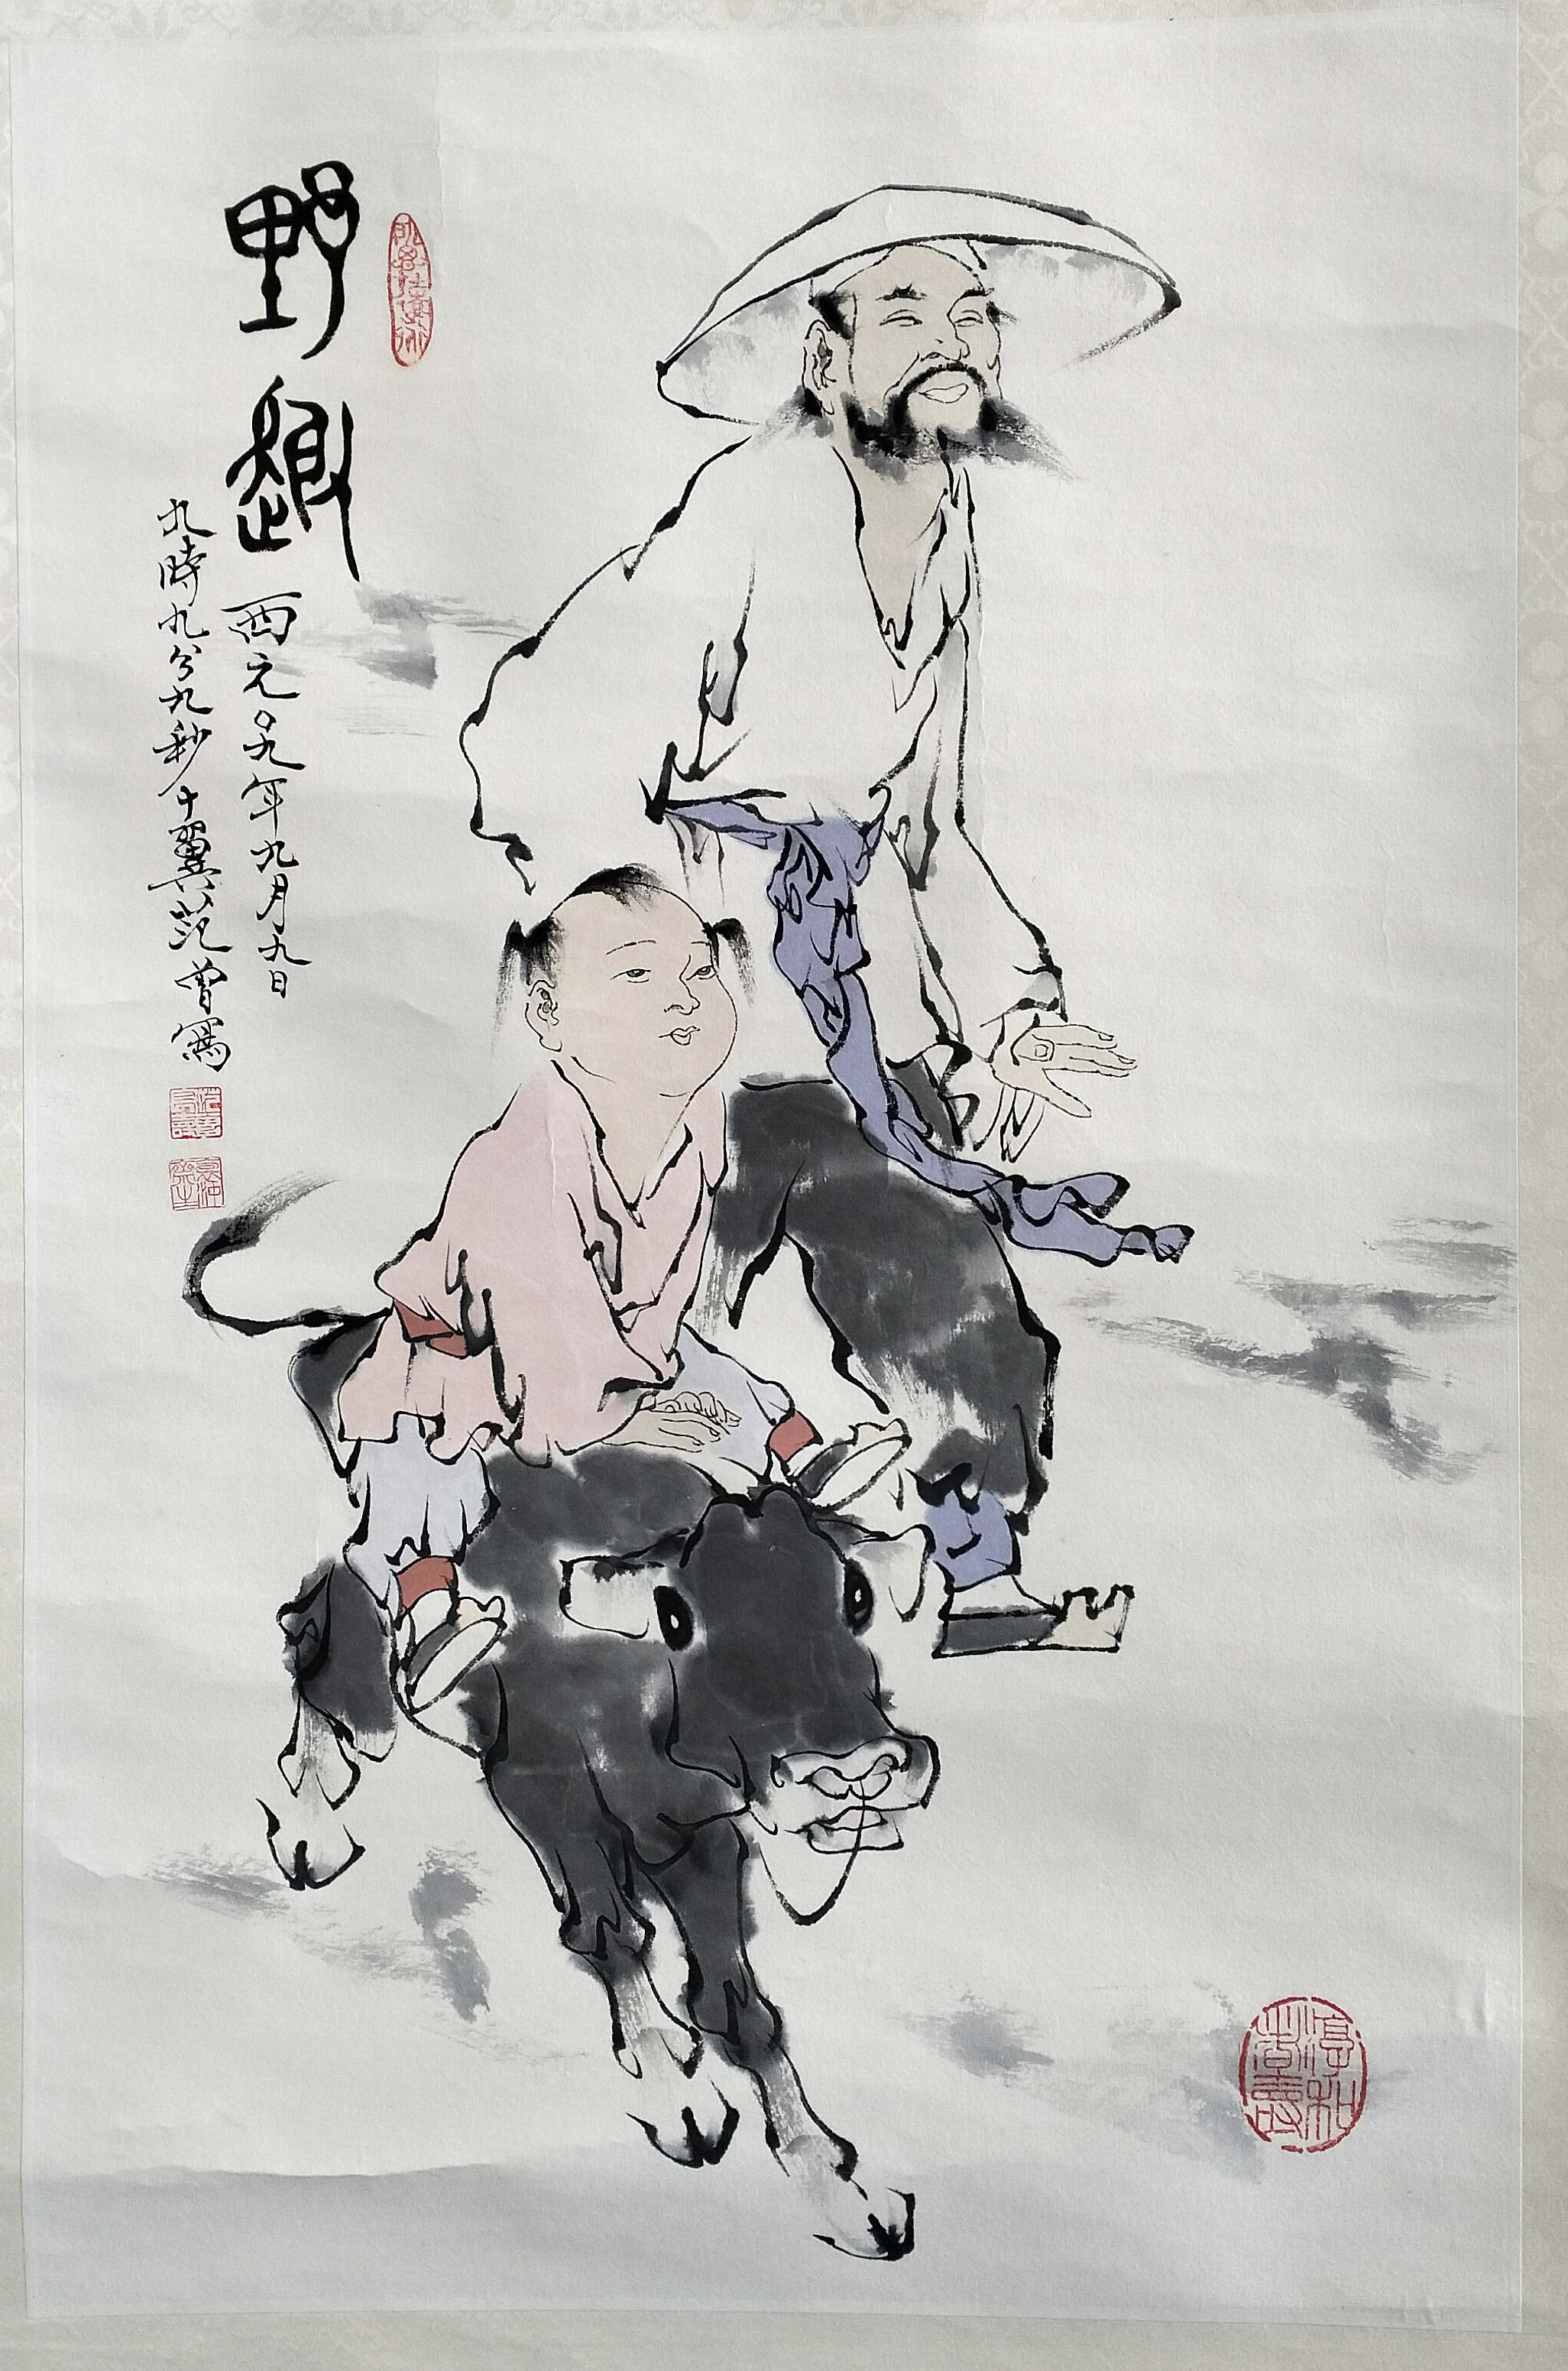 野趣
西元〇九年九月九日
九時九分九秒十翼范曾寫